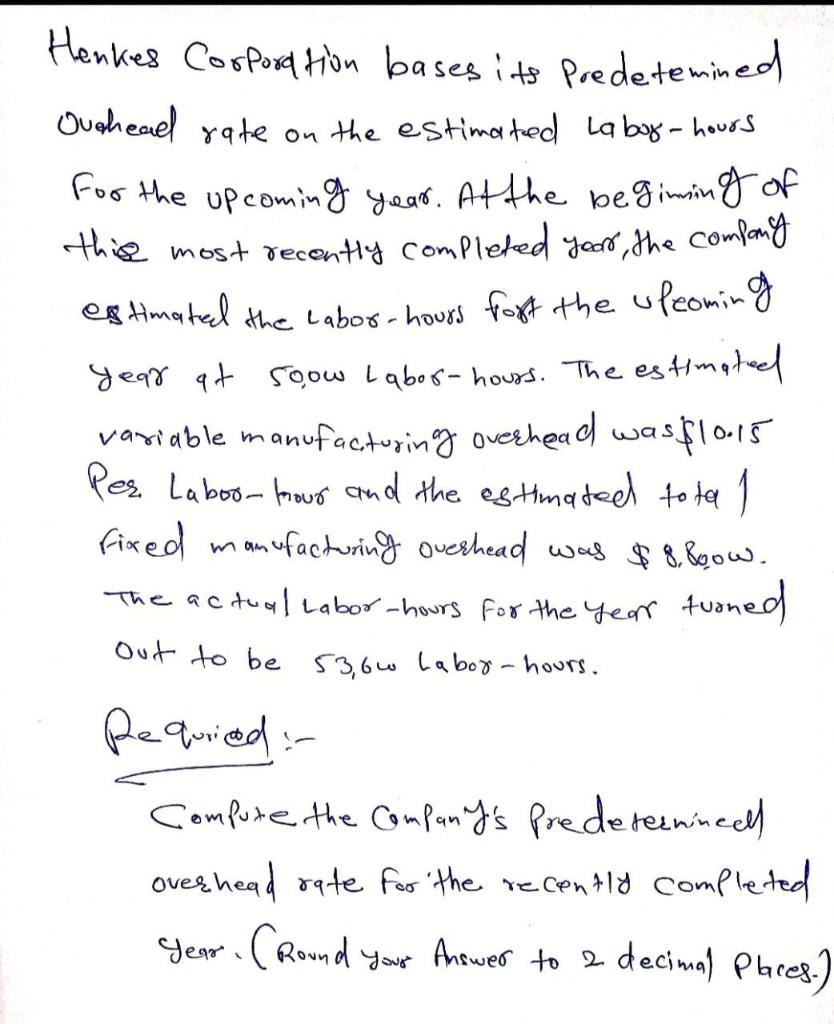 Henkes Corporation bases its Predetemined
Ovehead rate on the estimated Labor-hours
For the upcoming year. At the beginning of
this most recently completed year, the company
estimated the Labor-hours for the upcoming
year at 50,000 Labor-hours. The estimated
variable manufacturing overhead was $10.15
Per Labor-hour and the estimated total
fixed manufacturing overhead was $
The actual Labor-hours For the year turned
Out to be 53,600 Labor-hours.
Required :-
Compute the Company's Predetermined
overhead rate for the recently completed
year. (Round your Answer to 2 decimal Places.)